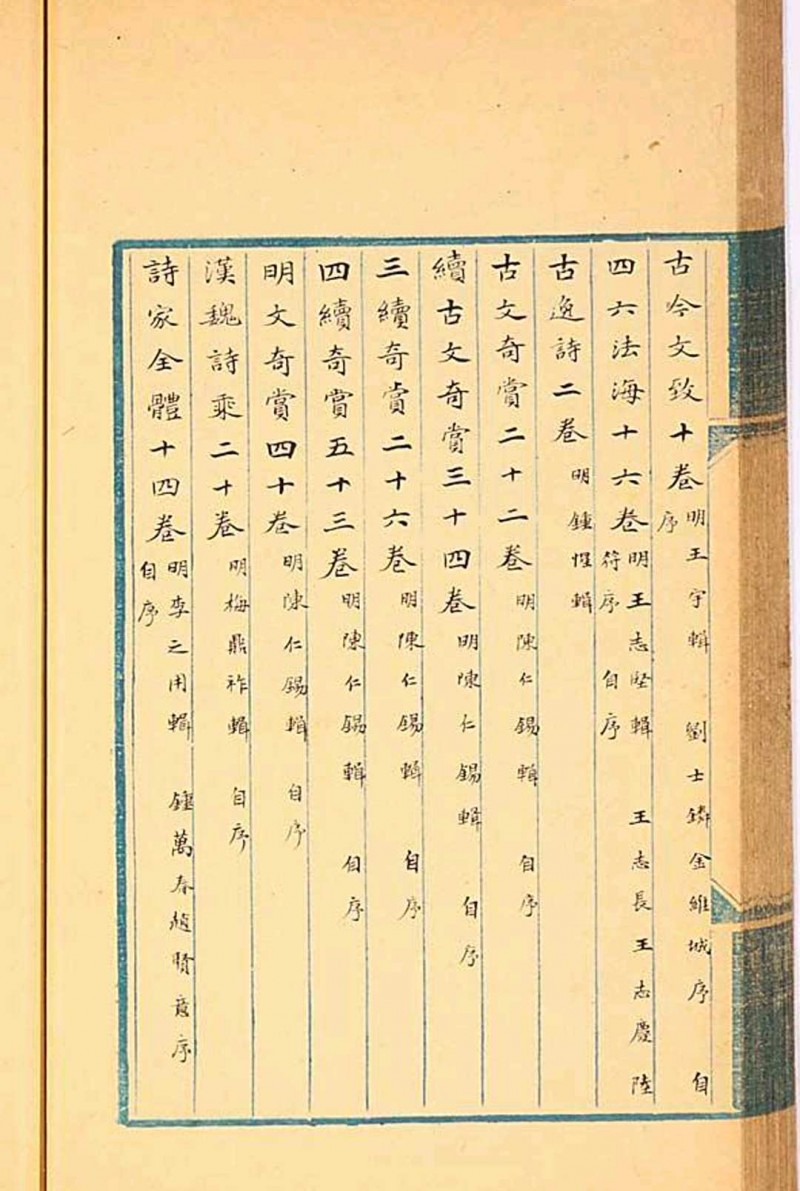 古今文致十卷 明王宇輯 劉士鏻金維城序 自序
四六法海十六卷 明王志堅輯 王志長王志慶陸符序 自序
古逸詩二卷 明鍾惺輯
古文奇賞二十二卷 明陳仁錫輯 自序
續古文奇賞三十四卷 明陳仁錫輯 自序
三續奇賞二十六卷 明陳仁錫輯 自序
四續奇賞五十三卷 明陳仁錫輯 自序
明文奇賞四十卷 明陳仁錫輯 自序
漢魏詩乘二十卷 明梅鼎祚輯 自序
詩家全體十四卷 明李之用輯 鍾萬春趙賢意序 自序